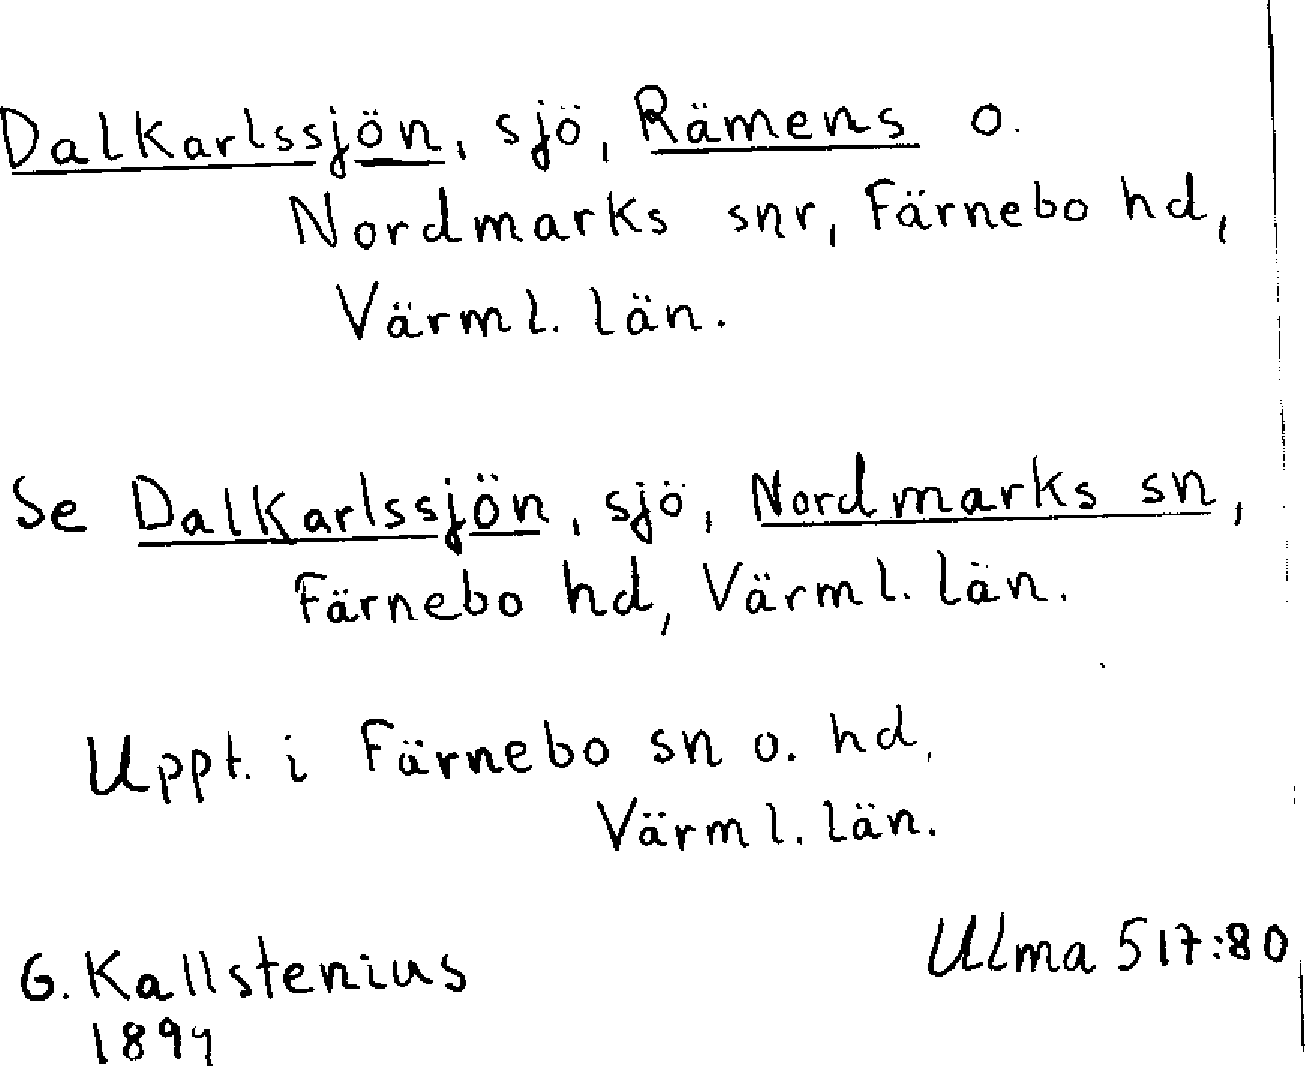 Dalkarlssjön, sjö, Rämens o.
Nordmarks snr, Färnebo hd,
Värml. län.
Se Dalkarlssjön, sjö, Nordmarks sn,
Färnebo hd, Värml. län.
Uppt. i Färnebo sn o. hd,
Värml. län.
G. Kallstenius
Ulma 517:80